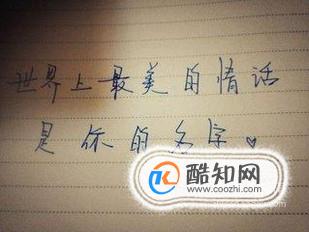 世界上最美的情话
是你的名字♥
酷知网
www.coozhi.com